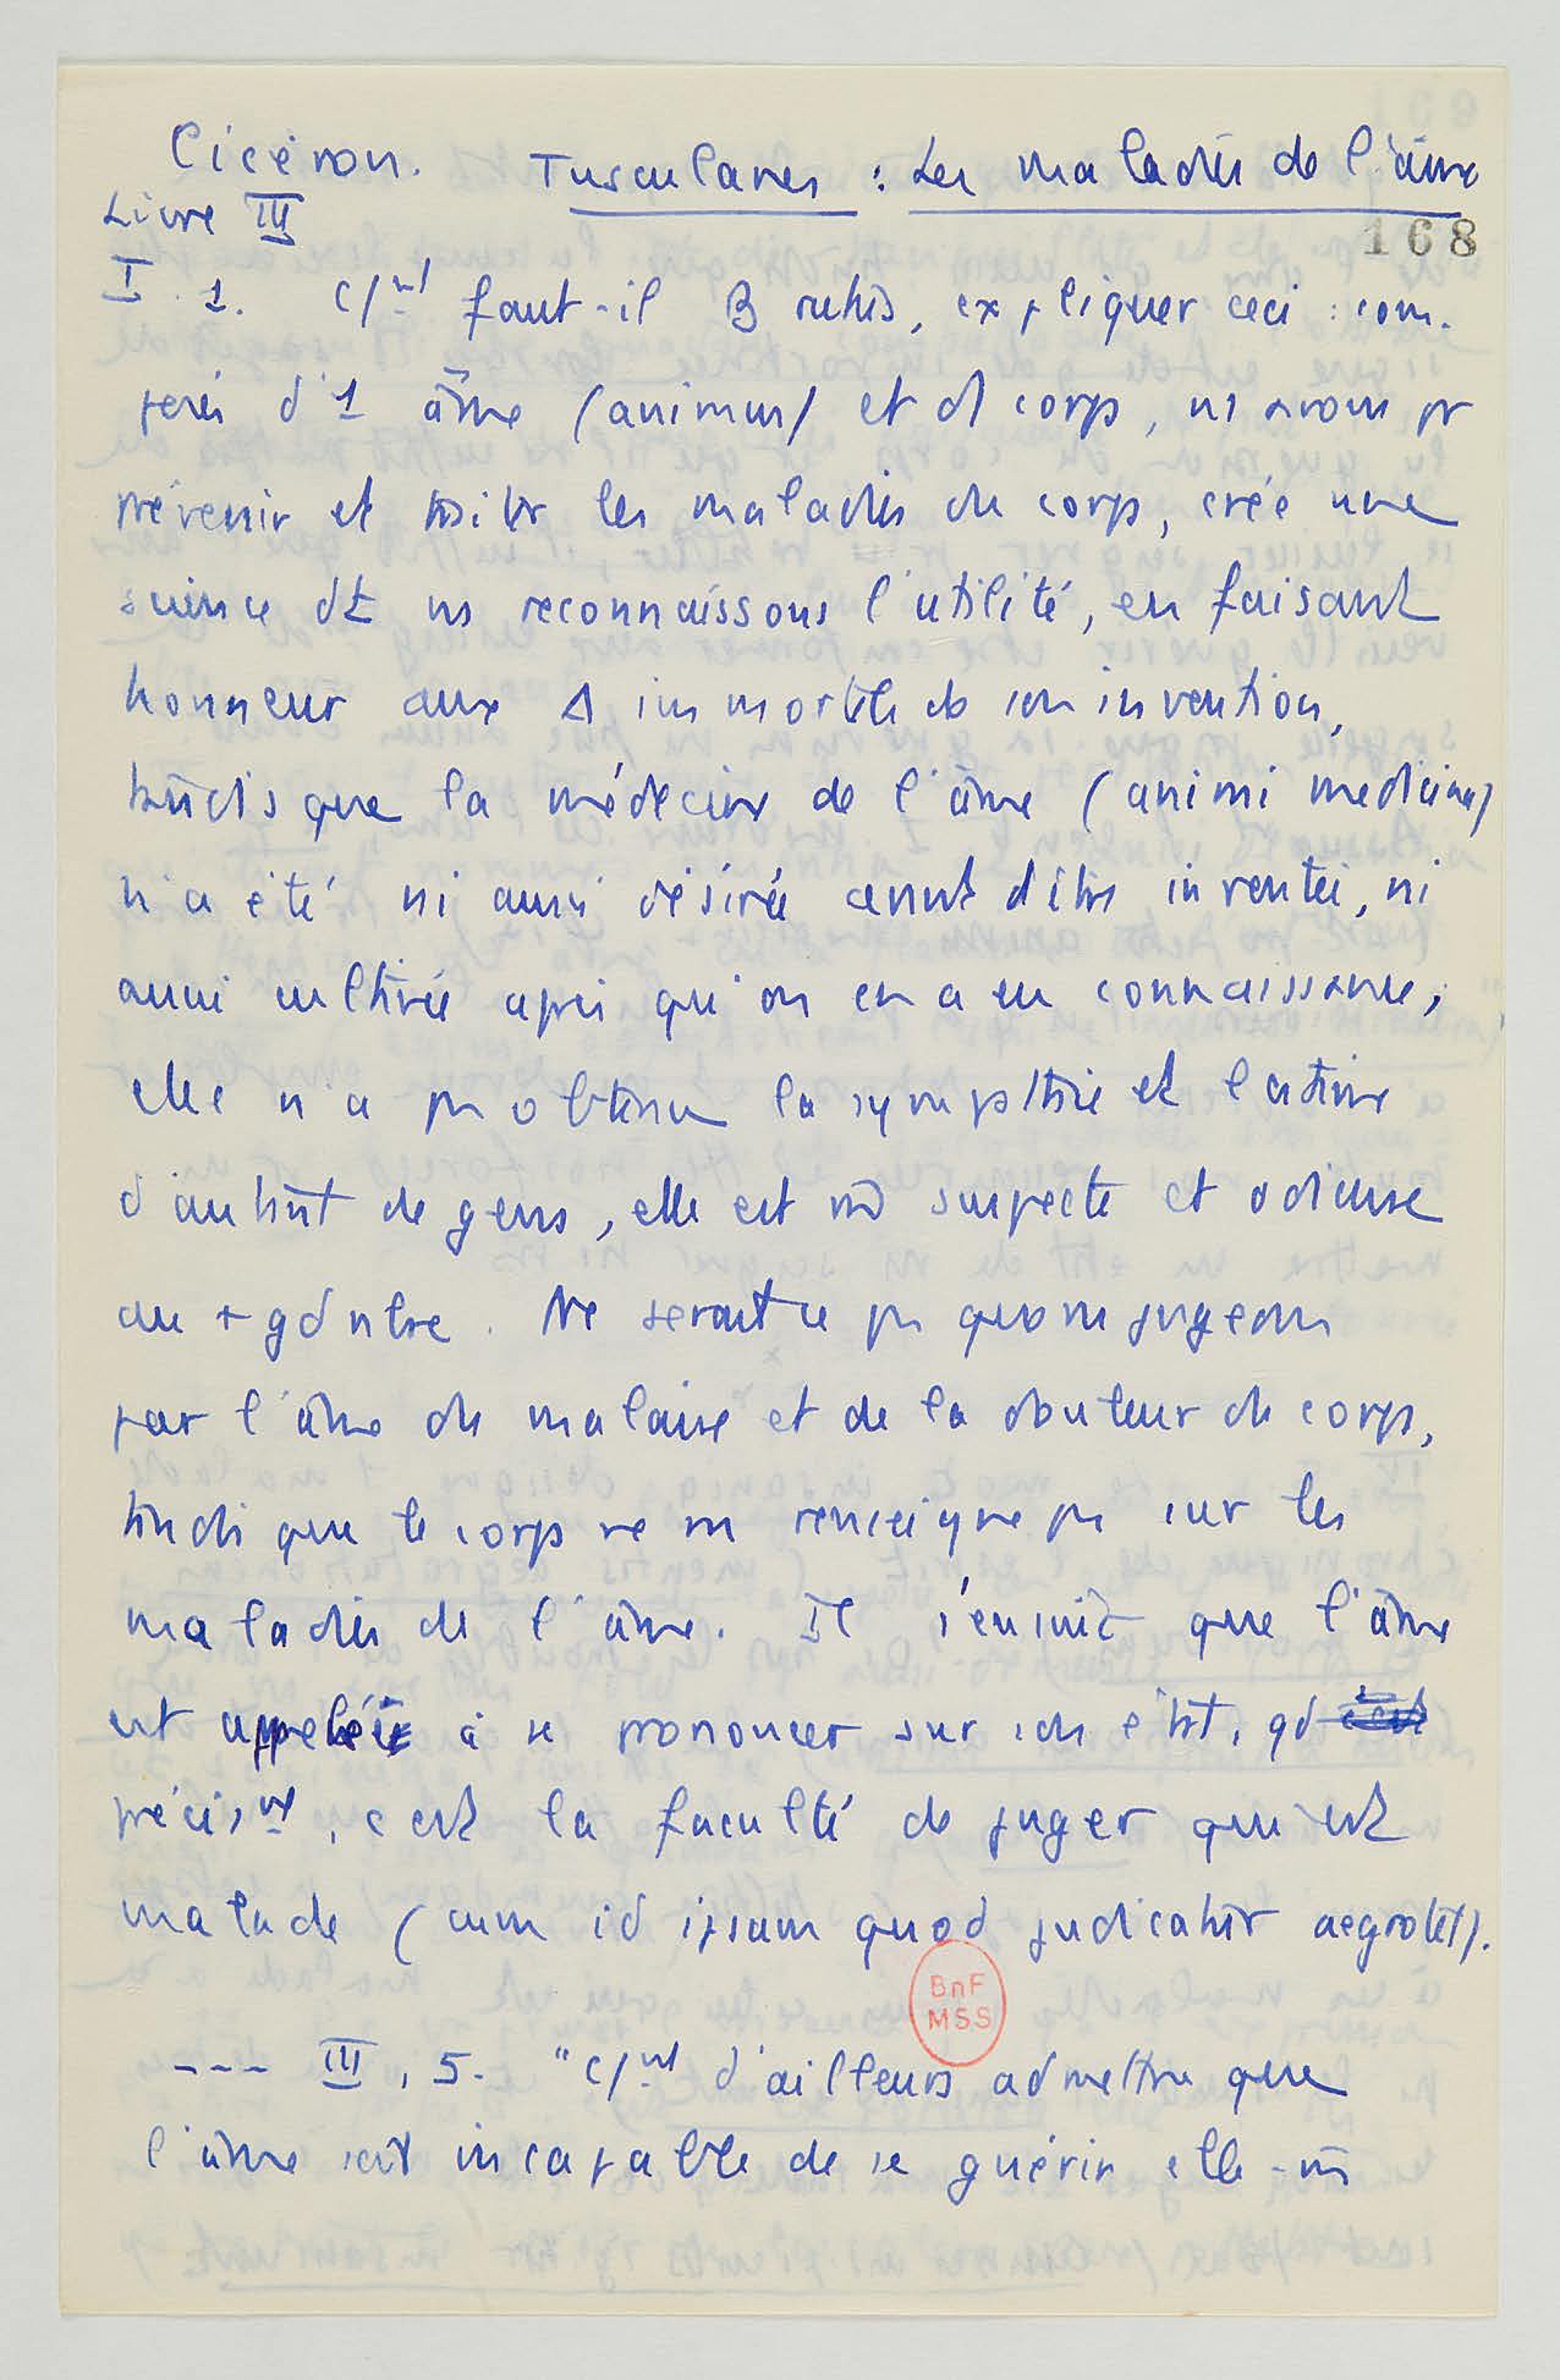 Cicéron. Tusculanes : Les maladies de l'âme
Livre III
168
I. 1. C/nt faut-il B rutus, expliquer ceci : com-
posés d'1 âme (animus) et d1 corps, ns avons pr
prévenir et traiter les maladies du corps, créé une
science dt ns reconnaissons l'utilité, en faisant
honneur aux Δ immortels de son invention,
tandis que la médecine de l'âme (animi medicina)
n'a été ni aussi désirée avant d'être inventée, ni
aussi cultivée après qu'on en a eu connaissance;
elle n'a pas obtenu la sympathie et l'estime
d'autant de gens, elle est m̄ suspecte et odieuse
au + gd nbre. Ne serait ce pas que ns jugeons
par l'âme du malaise et de la douleur du corps,
tandis que le corps ne ns renseigne pas sur les
maladies de l'âme. Il s'ensuit que l'âme
est appelée à se prononcer sur son état, qd
précisnt, c'est la faculté de juger qui est
malade (cum id ipsum quod judicatur aegrotet).
BnF
MSS
--- III, 5. "C/nt d'ailleurs admettre que
l'âme soit incapable de se guérir elle-m̄